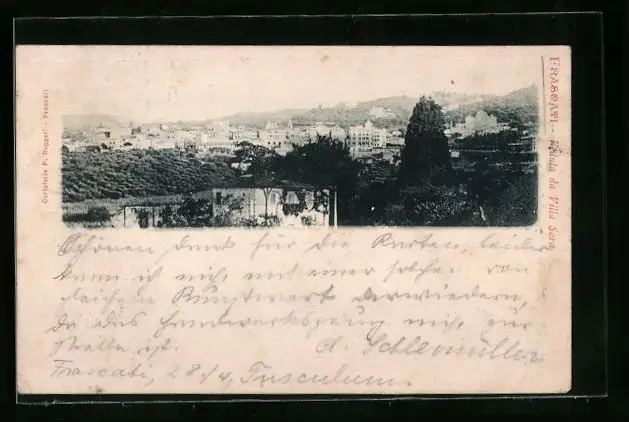 FRASCATI - Veduta da Villa Sora
Cartoleria F. Ruggeri - Frascati
Schönen Dank für die Karten, leider
kann ich mich mit einer solchen von
gleichem Kunstwert erwiedern,
da das Handwerkszeug nicht zur
Stelle ist.
Frascati, 28/4, Tusculum.